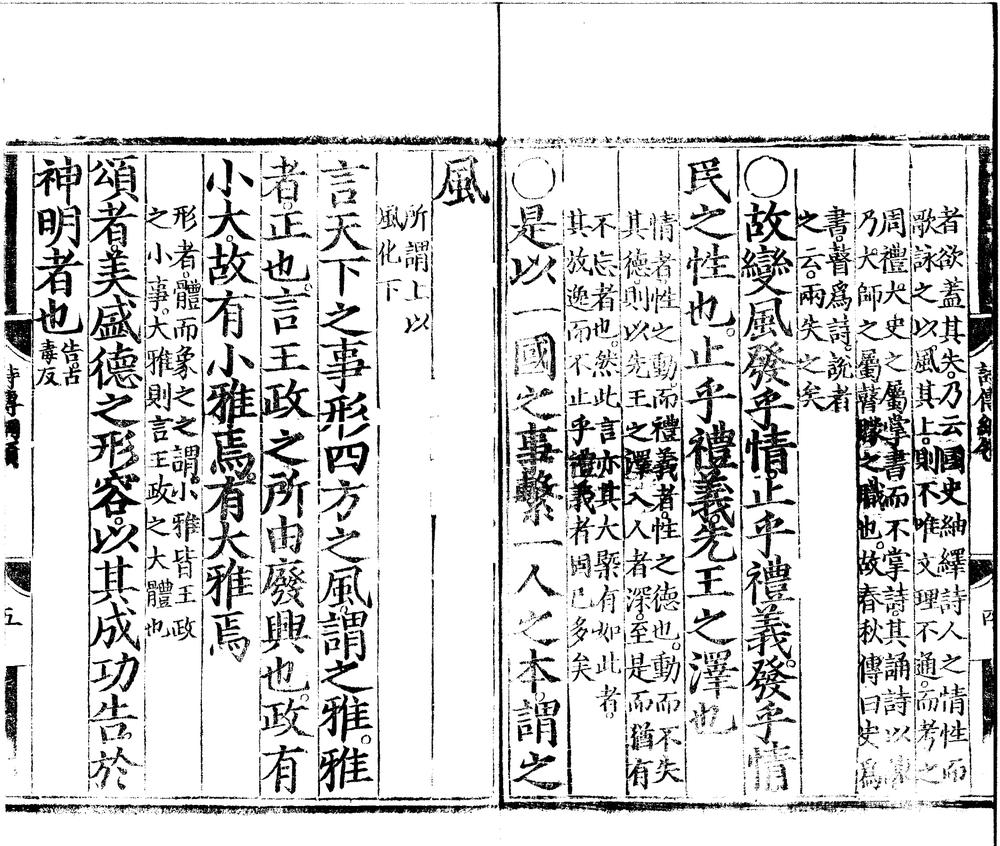 者欲蓋其失。乃云國史紬繹詩人之情性而
歌詠之以風其上。則不唯文理不通。而考之
周禮大史之屬。掌書而不掌詩。其誦詩以諫
乃大師之屬瞽矇之職也。故春秋傳曰史爲
書。瞽爲詩。說者
之云。兩失之矣
○故變風發乎情。止乎禮義。發乎情
民之性也。止乎禮義。先王之澤也
情者性之動。而禮義者。性之德也。動而不失
其德。則以先王之澤入人者深。至是而猶有
不忘者也。然此言亦其大槩有如此者。
其放逸而不止乎禮義者固已多矣
○是以一國之事繫一人之本。謂之
詩傳綱領
四
風
所謂上以
風化下
言天下之事形四方之風。謂之雅。雅
者。正也。言王政之所由廢興也。政有
小大。故有小雅焉。有大雅焉
形者。體而象之之謂。小雅皆王政
之小事。大雅則言王政之大體也
頌者。美盛德之形容。以其成功告。於
神明者也
告古
毒反
詩傳綱領
五